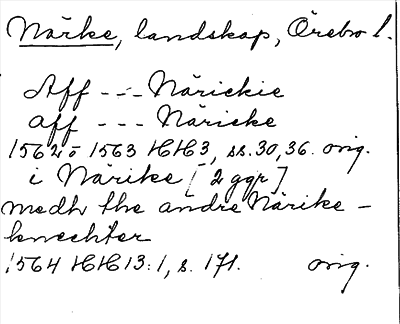 Närke, landskap, Örebro l.
Aff - - - Närickie
aff - - - Näricke
1562 o 1563 HH3, ss. 30, 36. orig.
i Närike [2 ggr]
medh the andre Närike-
knechter
1564 HH13:1, s. 171. orig.